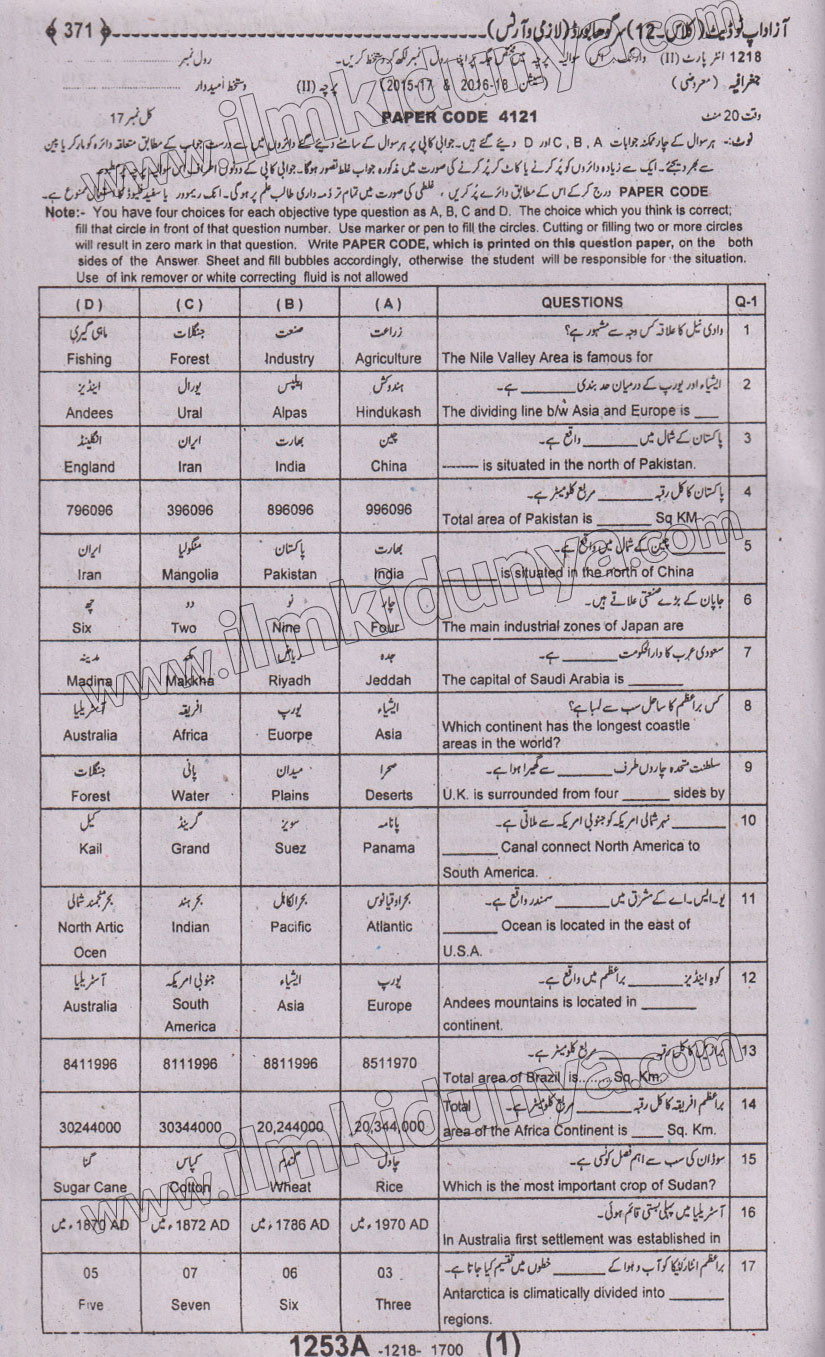 آزاد اپ ٹو ڈیٹ (کلاس۔12) سرگودھا بورڈ (لازمی و آرٹس) ﴿371﴾
1218 انٹر پارٹ (II) سوالیہ پرچہ میں مختص جگہ پر اپنا رول نمبر لکھ کر دستخط کریں۔ رول نمبر
جغرافیہ (معروضی) (سیشن 2015-17 & 2016-18) پرچہ (II) دستخط امیدوار
وقت 20 منٹ PAPER CODE 4121 کل نمبر 17
نوٹ:- ہر سوال کے چار ممکنہ جوابات A ، B ، C اور D دیئے گئے ہیں۔ جوابی کاپی پر ہر سوال کے سامنے دیئے گئے دائروں میں سے درست جواب کے مطابق متعلقہ دائرہ کو مارکر یا پین
سے بھر دیجئے۔ ایک سے زیادہ دائروں کو پُر کرنے یا کاٹ کر پُر کرنے کی صورت میں مذکورہ جواب غلط تصور ہوگا۔ جوابی کاپی کے دونوں اطراف اس سوالیہ پرچہ پر
PAPER CODE درج کر کے اس کے مطابق دائرے پُر کریں، غلطی کی صورت میں تمام تر ذمہ داری طالب علم پر ہوگی۔ انک ریموور یا سفید فلیوڈ کا استعمال ممنوع ہے۔
Note:- You have four choices for each objective type question as A, B, C and D. The choice which you think is correct;
fill that circle in front of that question number. Use marker or pen to fill the circles. Cutting or filling two or more circles
will result in zero mark in that question. Write PAPER CODE, which is printed on this question paper, on the both
sides of the Answer Sheet and fill bubbles accordingly, otherwise the student will be responsible for the situation.
Use of ink remover or white correcting fluid is not allowed
( D ) ( C ) ( B ) ( A ) QUESTIONS Q-1
ماہی گیری جنگلات صنعت زراعت وادی نیل کا علاقہ کس وجہ سے مشہور ہے؟ 1
Fishing Forest Industry Agriculture The Nile Valley Area is famous for
اینڈیز یورال ایلپس ہندوکش ایشیاء اور یورپ کے درمیان حد بندی ______ ہے۔ 2
Andees Ural Alpas Hindukash The dividing line b/w Asia and Europe is ___
انگلینڈ ایران بھارت چین پاکستان کے شمال میں ______ واقع ہے۔ 3
England Iran India China ------- is situated in the north of Pakistan.
پاکستان کا کل رقبہ ______ مربع کلومیٹر ہے۔ 4
796096 396096 896096 996096 Total area of Pakistan is ______ Sq KM
ایران منگولیا پاکستان بھارت ______ چین کے شمال میں واقع ہے۔ 5
Iran Mangolia Pakistan India ______ is situated in the north of China
چھ دو نو چار جاپان کے بڑے صنعتی علاقے ہیں۔ 6
Six Two Nine Four The main industrial zones of Japan are
مدینہ مکہ ریاض جدہ سعودی عرب کا دارالحکومت ______ ہے۔ 7
Madina Makkha Riyadh Jeddah The capital of Saudi Arabia is ______
آسٹریلیا افریقہ یورپ ایشیاء کس براعظم کا ساحل سب سے لمبا ہے؟ 8
Australia Africa Euorpe Asia Which continent has the longest coastle
areas in the world?
جنگلات پانی میدان صحرا سلطنت متحدہ چاروں طرف ______ سے گھیرا ہوا ہے۔ 9
Forest Water Plains Deserts U.K. is surrounded from four ______ sides by
کیل گرینڈ سویز پانامہ ______ نہر شمالی امریکہ کو جنوبی امریکہ سے ملاتی ہے۔ 10
Kail Grand Suez Panama ______ Canal connect North America to
South America.
بحر منجمند شمالی بحر ہند بحر الکاہل بحر اوقیانوس یو۔ایس۔اے کے مشرق میں ______ سمندر واقع ہے۔ 11
North Artic Indian Pacific Atlantic ______ Ocean is located in the east of
Ocen U.S.A.
آسٹریلیا جنوبی امریکہ ایشیاء یورپ کوہ اینڈیز ______ براعظم میں واقع ہے۔ 12
Australia South Asia Europe Andees mountains is located in ______
America continent.
برازیل کا کل رقبہ ______ مربع کلومیٹر ہے۔ 13
8411996 8111996 8811996 8511970 Total area of Brazil is........ Sq. Km.
براعظم افریقہ کا کل رقبہ ______ مربع کلومیٹر ہے۔ Total 14
30244000 30344000 20,244000 20,344,000 area of the Africa Continent is ____ Sq. Km.
گنا کپاس گندم چاول سوڈان کی سب سے اہم فصل کونسی ہے۔ 15
Sugar Cane Cotton Wheat Rice Which is the most important crop of Sudan?
آسٹریلیا میں پہلی بستی قائم ہوئی۔ 16
1870 AD، میں 1872 AD، میں 1786 AD، میں 1970 AD، میں In Australia first settlement was established in
05 07 06 03 براعظم انٹارکٹیکا کو آب و ہوا کے ______ خطوں میں تقسیم کیا جاتا ہے۔ 17
Five Seven Six Three Antarctica is climatically divided into ______
regions.
1253A -1218- 1700 (1)
www.ilmkidunya.com
www.ilmkidunya.com
www.ilmkidunya.com